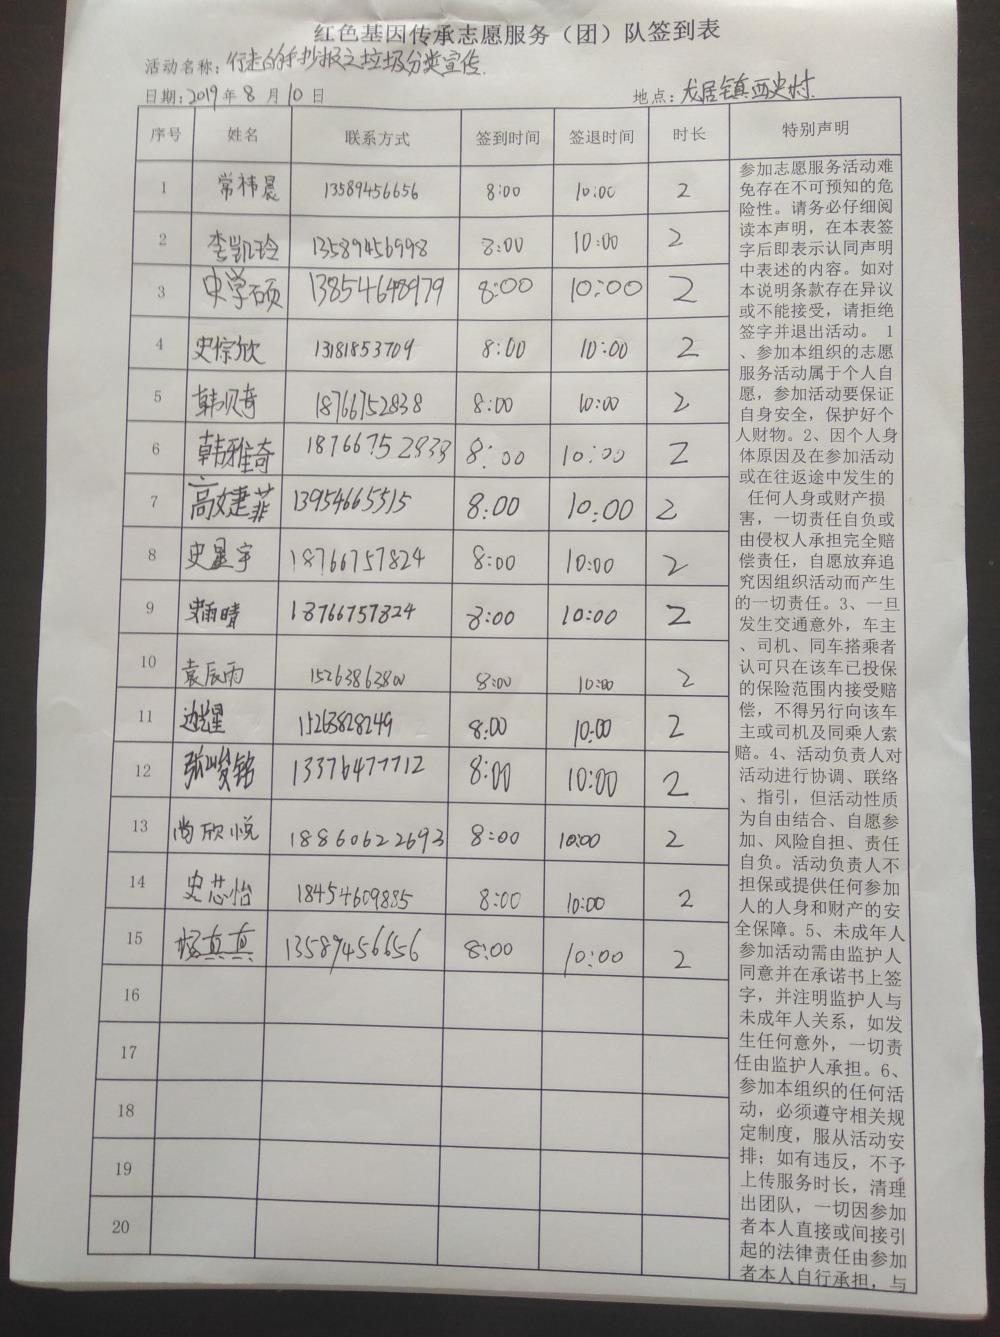 红色基因传承志愿服务（团）队签到表
活动名称：行走的手抄报之垃圾分类宣传
日期：2019年8月10日 地点：龙居镇西史村
序号 姓名 联系方式 签到时间 签退时间 时长 特别声明
1 常祎晨 13589456656 8:00 10:00 2
2 李凯玲 13589456998 8:00 10:00 2
3 史学硕 13854648979 8:00 10:00 2
4 史惊欣 13181853709 8:00 10:00 2
5 韩贝奇 18766752838 8:00 10:00 2
6 韩雅奇 18766752838 8:00 10:00 2
7 高婕菲 13954665515 8:00 10:00 2
8 史星宇 18766757824 8:00 10:00 2
9 史雨晴 18766757824 8:00 10:00 2
10 袁辰雨 15263863800 8:00 10:00 2
11 15263828249 8:00 10:00 2
12 张峻铭 13376477712 8:00 10:00 2
13 尚欣悦 18860622693 8:00 10:00 2
14 史芯怡 18454609885 8:00 10:00 2
15 杨真真 13589456656 8:00 10:00 2
16
17
18
19
20
参加志愿服务活动难
免存在不可预知的危
险性。请务必仔细阅
读本声明，在本表签
字后即表示认同声明
中表述的内容。如对
本说明条款存在异议
或不能接受，请拒绝
签字并退出活动。 1
、参加本组织的志愿
服务活动属于个人自
愿，参加活动要保证
自身安全，保护好个
人财物。2、因个人身
体原因及在参加活动
或在往返途中发生的
任何人身或财产损
害，一切责任自负或
由侵权人承担完全赔
偿责任，自愿放弃追
究因组织活动而产生
的一切责任。3、一旦
发生交通意外，车主
、司机、同车搭乘者
认可只在该车已投保
的保险范围内接受赔
偿，不得另行向该车
主或司机及同乘人索
赔。4、活动负责人对
活动进行协调、联络
、指引，但活动性质
为自由结合、自愿参
加、风险自担、责任
自负。活动负责人不
担保或提供任何参加
人的人身和财产的安
全保障。5、未成年人
参加活动需由监护人
同意并在承诺书上签
字，并注明监护人与
未成年人关系，如发
生任何意外，一切责
任由监护人承担。6、
参加本组织的任何活
动，必须遵守相关规
定制度，服从活动安
排；如有违反，不予
上传服务时长，清理
出团队，一切因参加
者本人直接或间接引
起的法律责任由参加
者本人自行承担，与